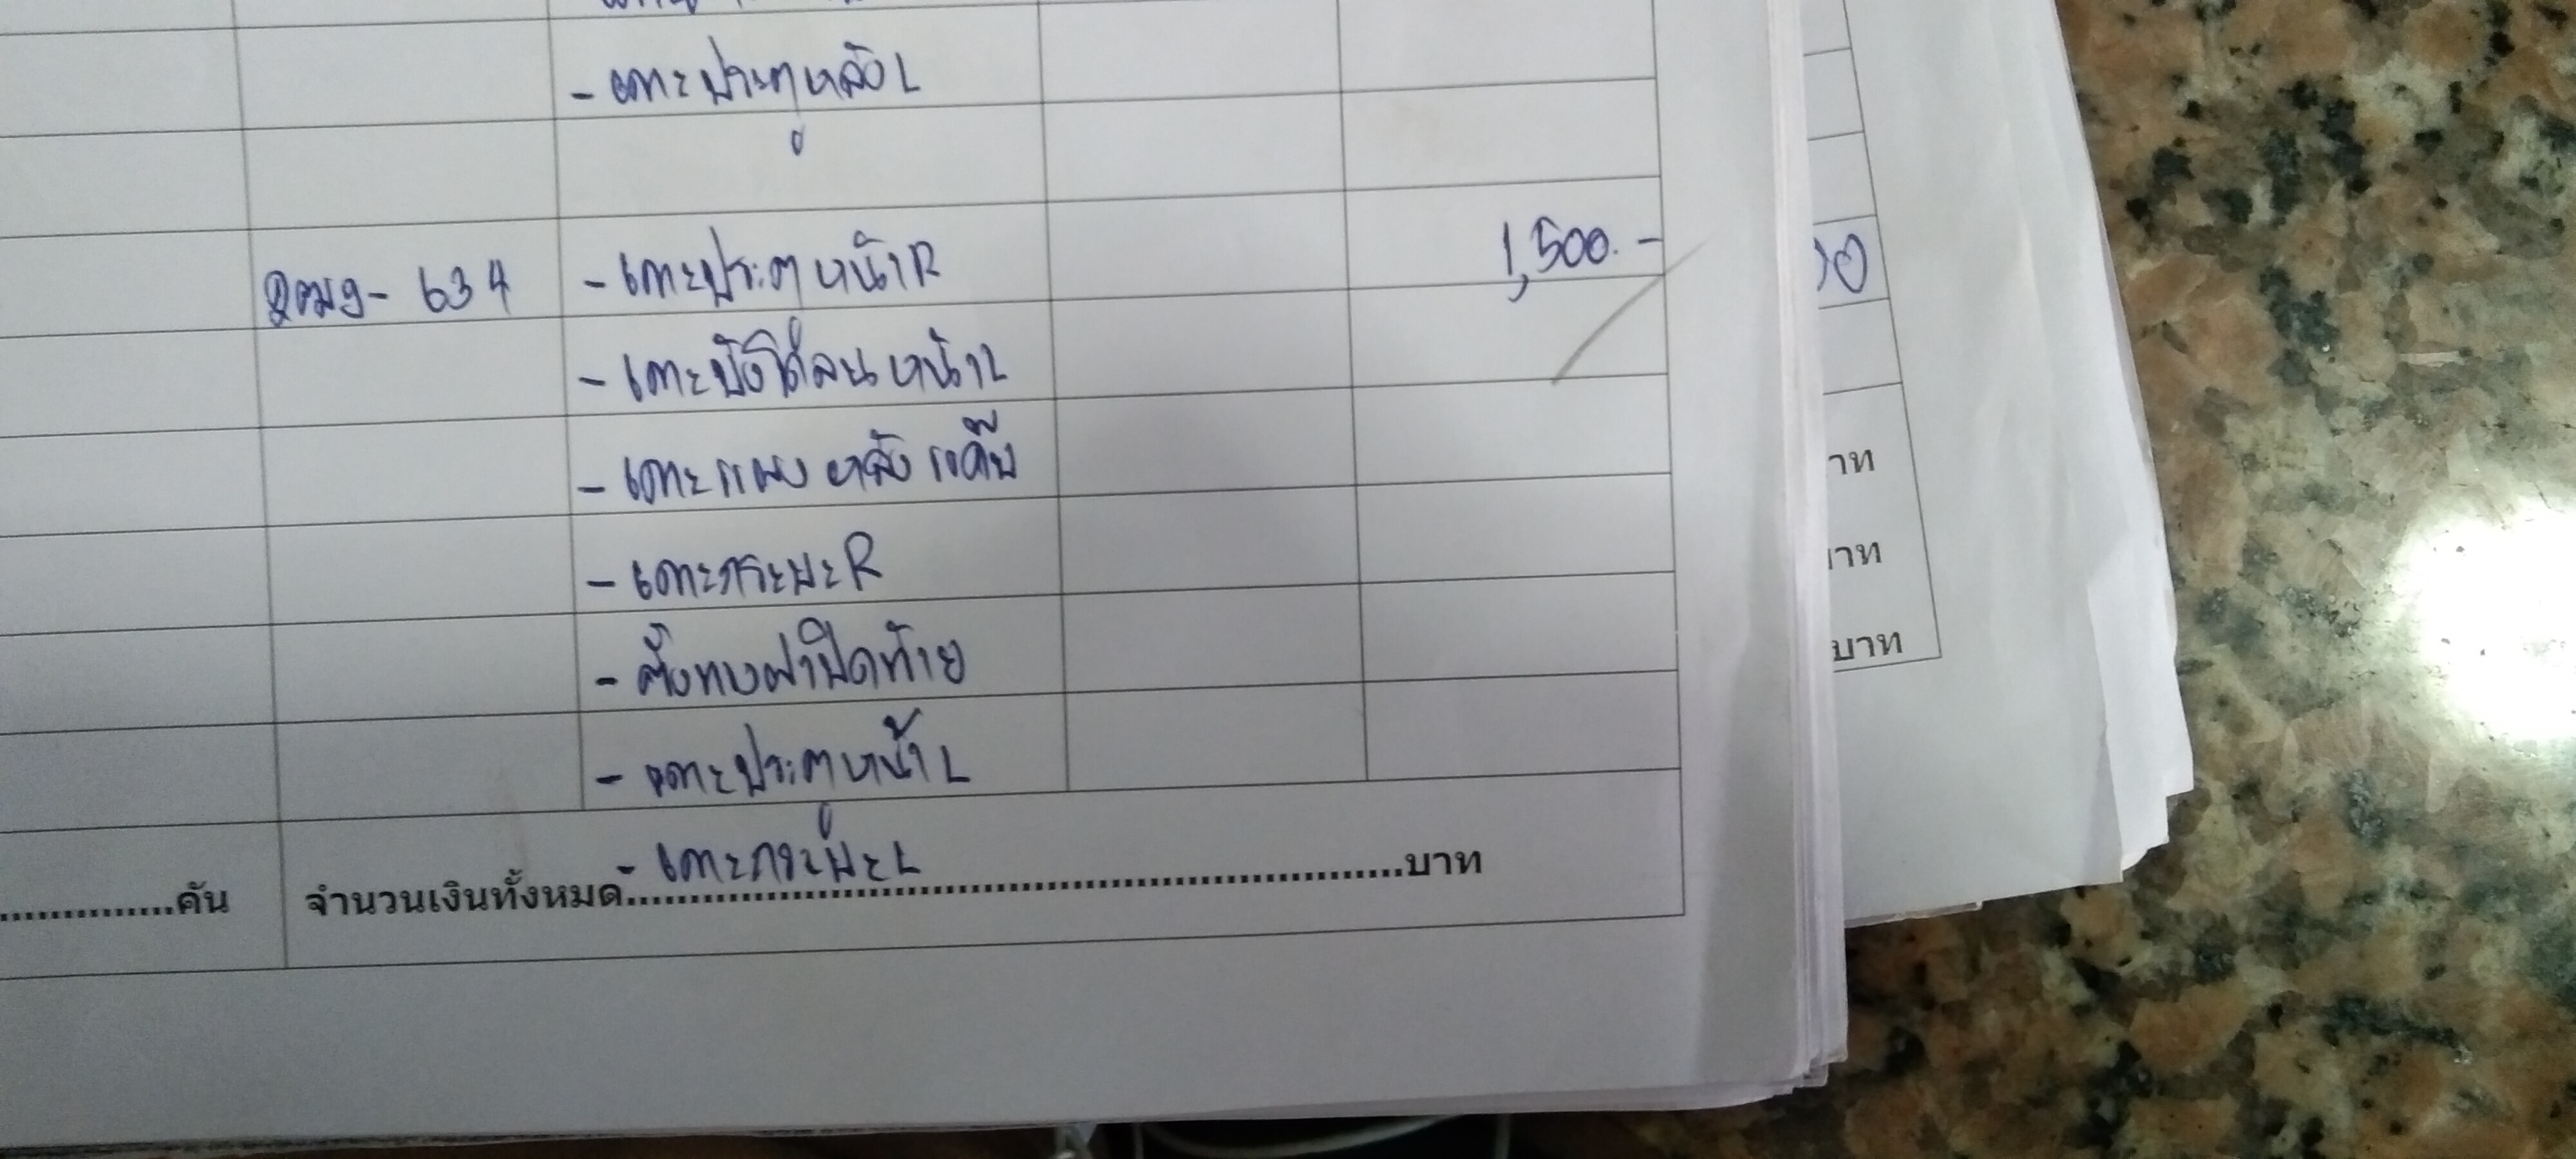 - เคาะประตูหลังL
2ฒฌ-634 - เคาะประตูหน้าR 1,500.-
- เคาะบังโคลนหน้าL
- เคาะแผงหลังแค๊บ
- เคาะกระบะR
- ตั้งทางฝาปิดท้าย
- เคาะประตูหน้าL
- เคาะกระบะL
คัน จำนวนเงินทั้งหมด บาท
าท
บาท
บาท